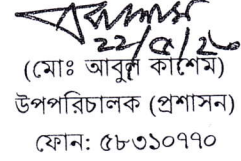 ২২/৫/২০
(মোঃ আবুল কাশেম)
উপপরিচালক (প্রশাসন)
ফোন: ৫৮৩১০৭৭০